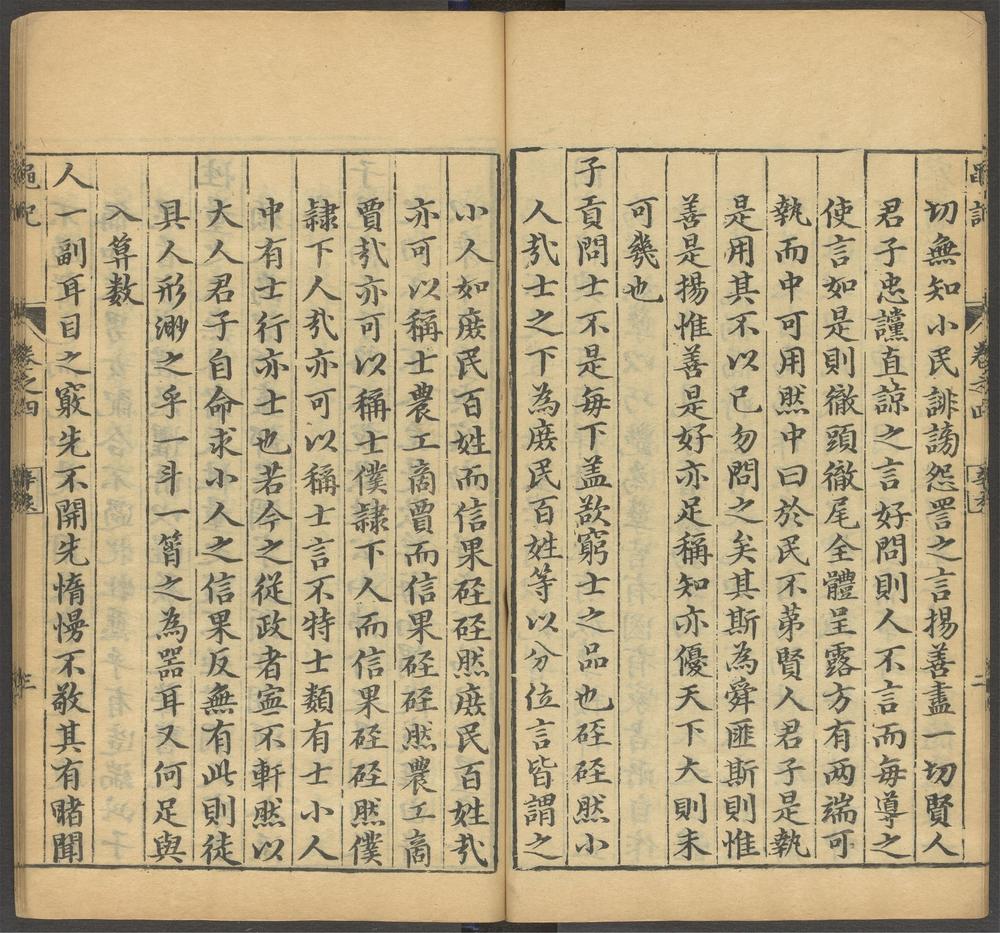 切無知小民誹謗怨詈之言揚善盡一切賢人
君子忠讜直諒之言好問則人不言而每導之
使言如是則徹頭徹尾全體呈露方有两端可
執而中可用然中曰於民不苐賢人君子是執
是用其不以已勿問之矣其斯為舜匪斯則惟
善是揚惟善是好亦足稱知亦優天下大則未
可幾也
子貢問士不是每下盖欲窮士之品也硜硜然小
人㢤士之下為庶民百姓等以分位言皆謂之
小人如庶民百姓而信果硜硜然庶民百姓㢤
亦可以稱士農工商賈而信果硜硜然農工商
賈㢤亦可以稱士僕隸下人而信果硜硜然僕
隸下人㢤亦可以稱士言不特士類有士小人
中有士行亦士也若今之從政者寍不軒然以
大人君子自命求小人之信果反無有此則徒
具人形渺之乎一斗一筲之為噐耳又何足與
入算数
人一副耳目之竅先不開先惰慢不敬其有睹聞
卷之四
三